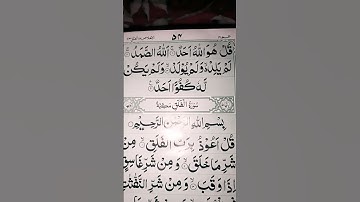 ۵۴
قُلْ هُوَ اللّٰهُ اَحَدٌ ۚ اَللّٰهُ الصَّمَدُ ۚ
لَمْ يَلِدْ ۙ وَلَمْ يُوْلَدْ ۙ وَلَمْ يَكُنْ
لَّهٗ كُفُوًا اَحَدٌ
سُوْرَةُ الْفَلَقِ مَكِّيَّةٌ
بِسْمِ اللّٰهِ الرَّحْمٰنِ الرَّحِيْمِ
قُلْ اَعُوْذُ بِرَبِّ الْفَلَقِ ۙ مِنْ
شَرِّ مَا خَلَقَ ۙ وَ مِنْ شَرِّ غَاسِقٍ
اِذَا وَقَبَ ۙ وَ مِنْ شَرِّ النَّفّٰثٰتِ